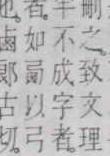 刪之致文理
半不成字者
者。如以弓
也。鹵郎古切